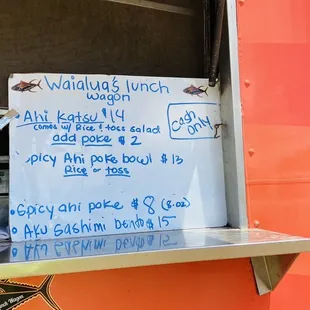 Waialua's lunch
wagon
• Ahi Katsu $14
comes w/ Rice & toss salad
add poke $2
Cash
only
• Spicy Ahi poke bowl $13
Rice or toss
• Spicy ahi poke $8 (8.oz)
• Aku Sashimi Bento $15